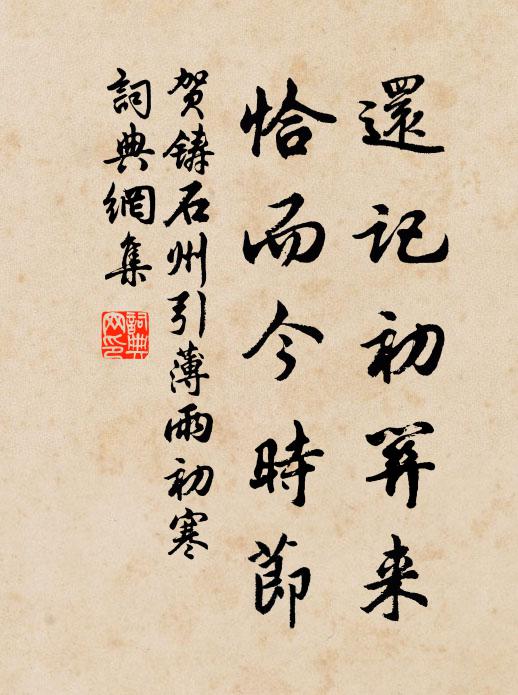 還記初關来
恰而今時節
贺鑄石州引薄雨初寒
詞典網集
詞典
网印